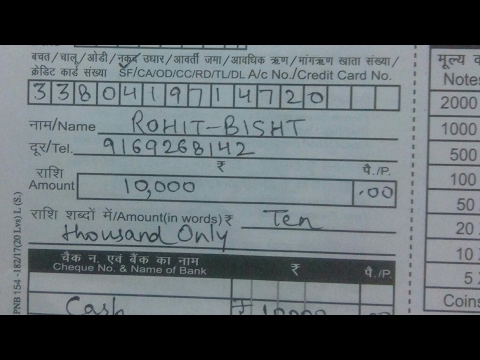 बचत/चालू/ओडी/नकद उधार/आवर्ती जमा/आवधिक ऋण/मांगऋण खाता संख्या/
क्रेडिट कार्ड संख्या SF/CA/OD/CC/RD/TL/DL A/c No./Credit Card No.
3380419714720
नाम/Name ROHIT-BISHT
दूर/Tel. 9169268142
राशि ₹ पै./P.
Amount 10,000 .00
राशि शब्दों में/Amount(in words) ₹ Ten
thousand Only
चैक न. एवं बैंक का नाम ₹ पै./P.
Cheque No. & Name of Bank
Cash ₹ 10000 00
PNB 154 -182/17(20 Lvs) L (S.)
मूल्य
Notes
2000
1000
500
100
50
20
10
5
Coins